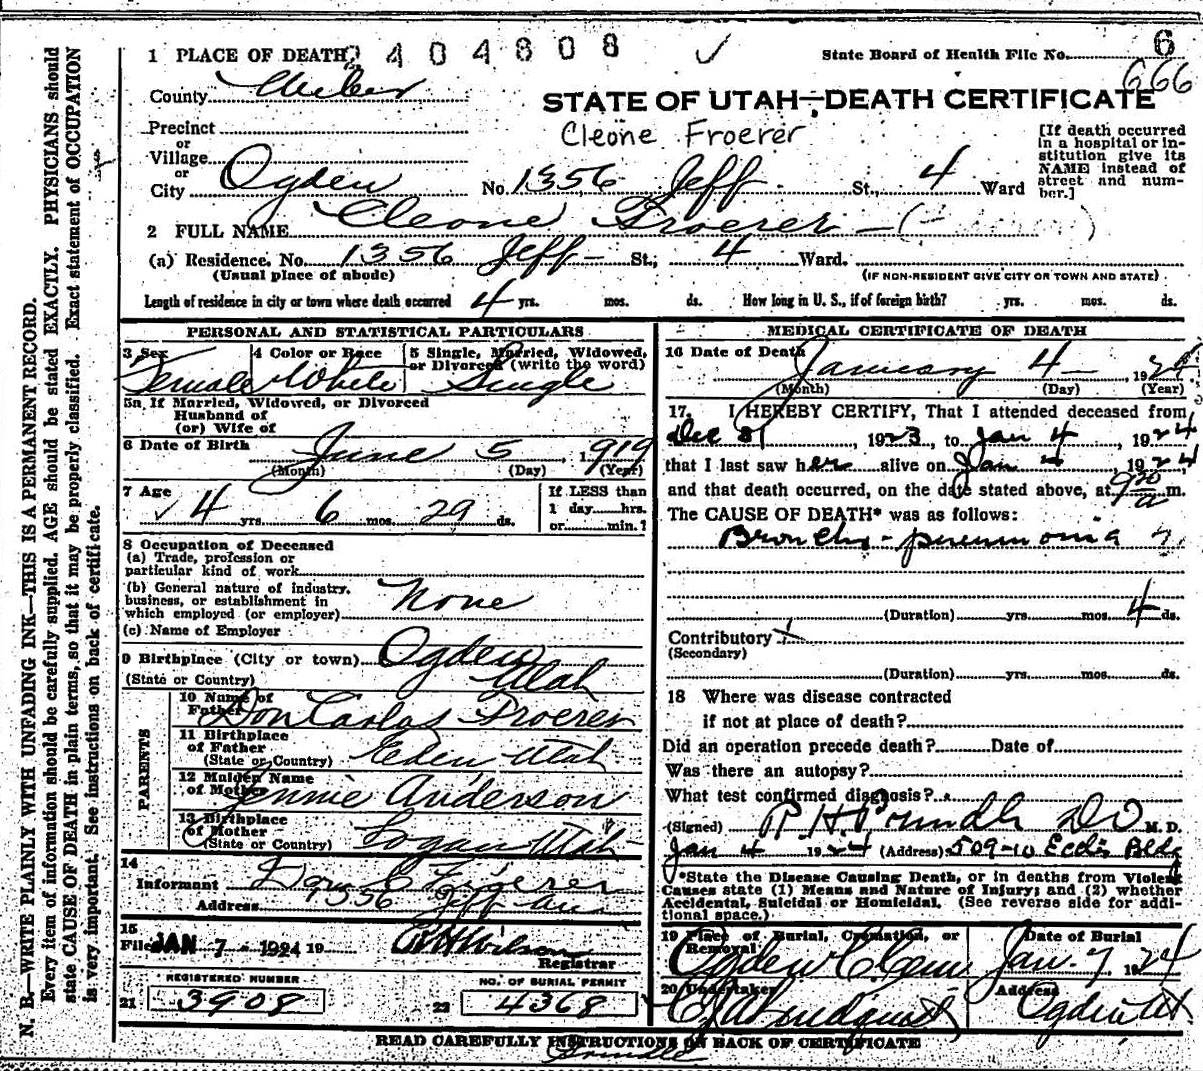 1 PLACE OF DEATH 2404808 State Board of Health File No. 6
666
County Weber
STATE OF UTAH—DEATH CERTIFICATE
Cleone Froerer
Precinct
or
Village
or
City Ogden No. 1356 Jeff. St., 4 Ward
[If death occurred in a hospital or institution give its NAME instead of street and number.]
2 FULL NAME Cleone Froerer
(a) Residence. No. 1356 Jeff St., 4 Ward.
(Usual place of abode) (IF NON-RESIDENT GIVE CITY OR TOWN AND STATE)
Length of residence in city or town where death occurred 4 yrs. mos. ds. How long in U. S., if of foreign birth? yrs. mos. ds.
PERSONAL AND STATISTICAL PARTICULARS
3 Sex 4 Color or Race 5 Single, Married, Widowed, or Divorced (write the word)
Female White Single
5a If Married, Widowed, or Divorced
Husband of
(or) Wife of
6 Date of Birth June 5, 1919
(Month) (Day) (Year)
7 Age 4 yrs. 6 mos. 29 ds. If LESS than 1 day hrs. or min.?
8 Occupation of Deceased
(a) Trade, profession or
particular kind of work
(b) General nature of industry,
business, or establishment in
which employed (or employer) None
(c) Name of Employer
9 Birthplace (City or town) Ogden
(State or Country) Utah
PARENTS
10 Name of Father Don Carlos Froerer
11 Birthplace of Father (State or Country) Eden Utah
12 Maiden Name of Mother Jennie Anderson
13 Birthplace of Mother (State or Country) Logan Utah
14
Informant Don C Froerer
Address 1356 Jeff Ave
15
Filed JAN 7 - 1924 19 Wilson
Registrar
REGISTERED NUMBER NO. OF BURIAL PERMIT
21 3908 22 4368
MEDICAL CERTIFICATE OF DEATH
16 Date of Death January 4 - , 1924
(Month) (Day) (Year)
17. I HEREBY CERTIFY, That I attended deceased from
Dec 31, 1923, to Jan 4, 1924
that I last saw her alive on Jan 4, 1924,
and that death occurred, on the date stated above, at 9 20 a m.
The CAUSE OF DEATH* was as follows:
Broncho-pneumonia
(Duration) yrs. mos. 4 ds.
Contributory
(Secondary)
(Duration) yrs. mos. ds.
18 Where was disease contracted
if not at place of death?
Did an operation precede death? Date of
Was there an autopsy?
What test confirmed diagnosis?
(Signed) DO M. D.
Jan 4 1924 (Address) 509-10 Eccles Bldg
*State the Disease Causing Death, or in deaths from Violent
Causes state (1) Means and Nature of Injury; and (2) whether
Accidental, Suicidal or Homicidal. (See reverse side for addi-
tional space.)
19 Place of Burial, Cremation, or Removal Date of Burial
Ogden Cem Jan. 7 1924
20 Undertaker Address
Lindquist Ogden Ut
READ CAREFULLY INSTRUCTIONS ON BACK OF CERTIFICATE
N. B.—WRITE PLAINLY WITH UNFADING INK—THIS IS A PERMANENT RECORD.
Every item of information should be carefully supplied. AGE should be stated EXACTLY. PHYSICIANS should
state CAUSE OF DEATH in plain terms, so that it may be properly classified. Exact statement of OCCUPATION
is very important. See instructions on back of certificate.